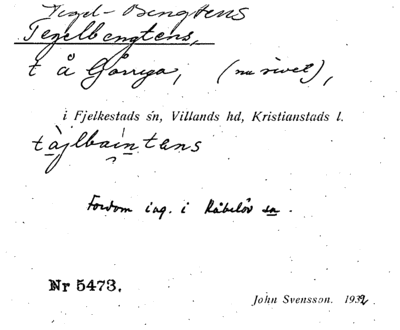 Tegel-Bengtens
Tegelbengtens,
t å Gårrya, (nu rivet),
i Fjelkestads sn, Villands hd, Kristianstads l.
tàjlbaíntens
Fordom iag. i Råbelöv sn.
Nr 5473.
John Svensson. 1932